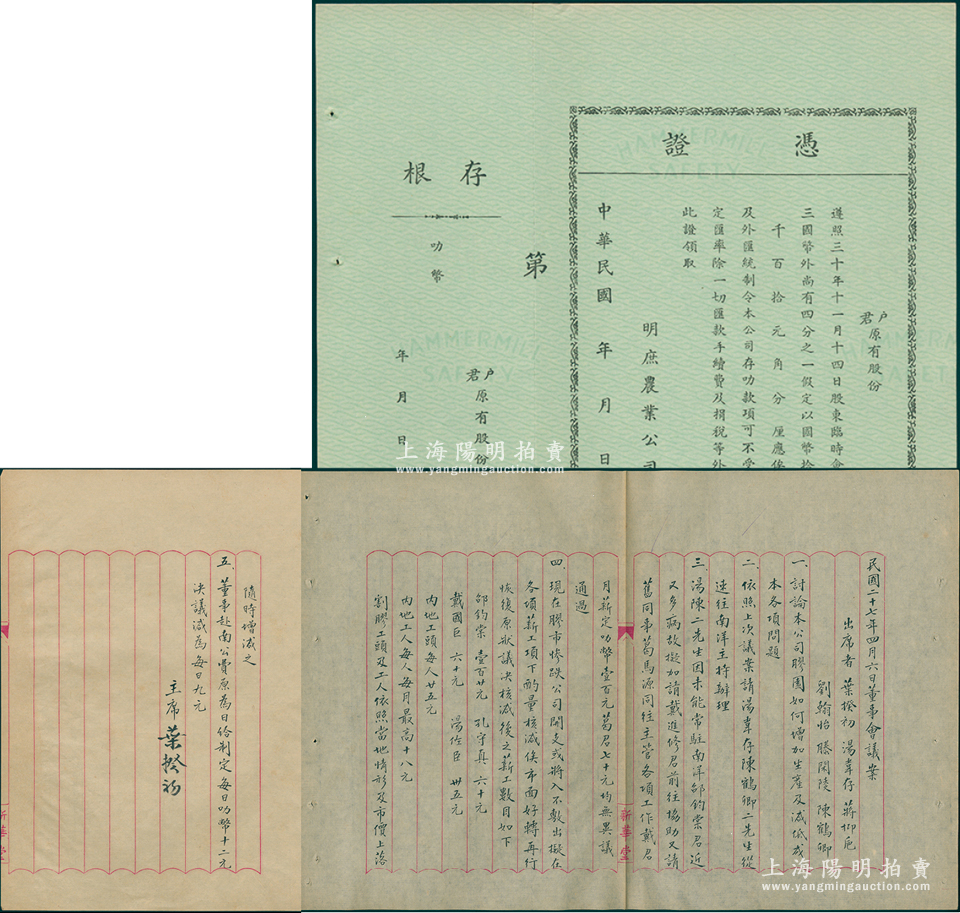 憑證
户君原有股份
遵照三十年十一月十四日股東臨時會
三國幣外尚有四分之一假定以國幣拾
千百拾元角分厘應俟
及外匯統制令本公司存叻款項可不受
定匯率除一切匯款手續費及捐稅等外
此證領取
明庶農業公司
中華民國年月日
第
存根
叻幣
户君原有股份
年月日
HAMMERMILL
SAFETY
HAMMERMILL
SAFETY
HAMMERMILL
SAFETY
上海陽明拍賣
www.yangmingauction.com
民國二十七年四月六日董事會議案
出席者 葉揆初 湯韋存 蔣抑卮
劉翰怡 滕閎陵 陳鶴卿
一、討論本公司膠園如何增加生産及減低成
本各項問題
二、依照上次議案請湯韋存陳鶴卿二先生從
速往南洋主持辦理
三、湯陳二先生因未能常駐南洋邵鈞棠君近
又多病故擬加請戴進修君前往協助又請
舊同事葛馬源同往主管各項工作戴君
月薪定叻幣壹百元葛君七十元均無異議
通過
四、現在膠市慘跌公司開支或將入不敷出擬在
各項薪工項下酌量核減俟市面好轉再行
恢復原狀議決核減後之薪工數目如下
邵鈞棠 壹百廿元 孔守真 六十元
戴國臣 六十元 湯佐臣 卅五元
内地工頭每人廿五元
内地工人每人每月最高十八元
割膠工頭及工人依照當地情形及市價上落
隨時增減之
五、董事赴南公費原為日給制定每日叻幣十二元
決議減為每日九元
主席 葉揆初
新華堂
上海陽明拍賣
www.yangmingauction.com